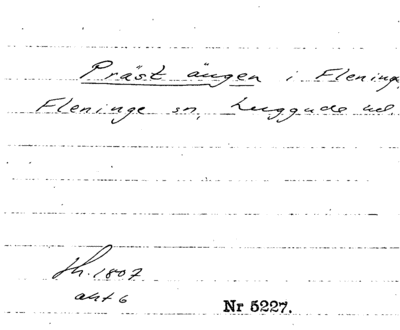 Präst ängen i Fleninge
Fleninge sn, Luggude hd.
Sh. 1807
akt 6
Nr 5227.